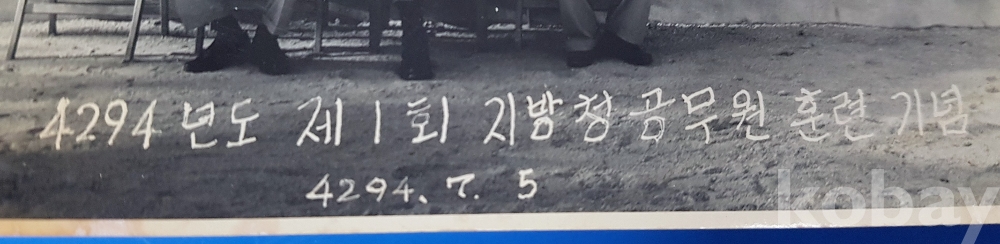 4294 년도 제 1 회 지방청공무원 훈련 기념
4294. 7. 5
kobay